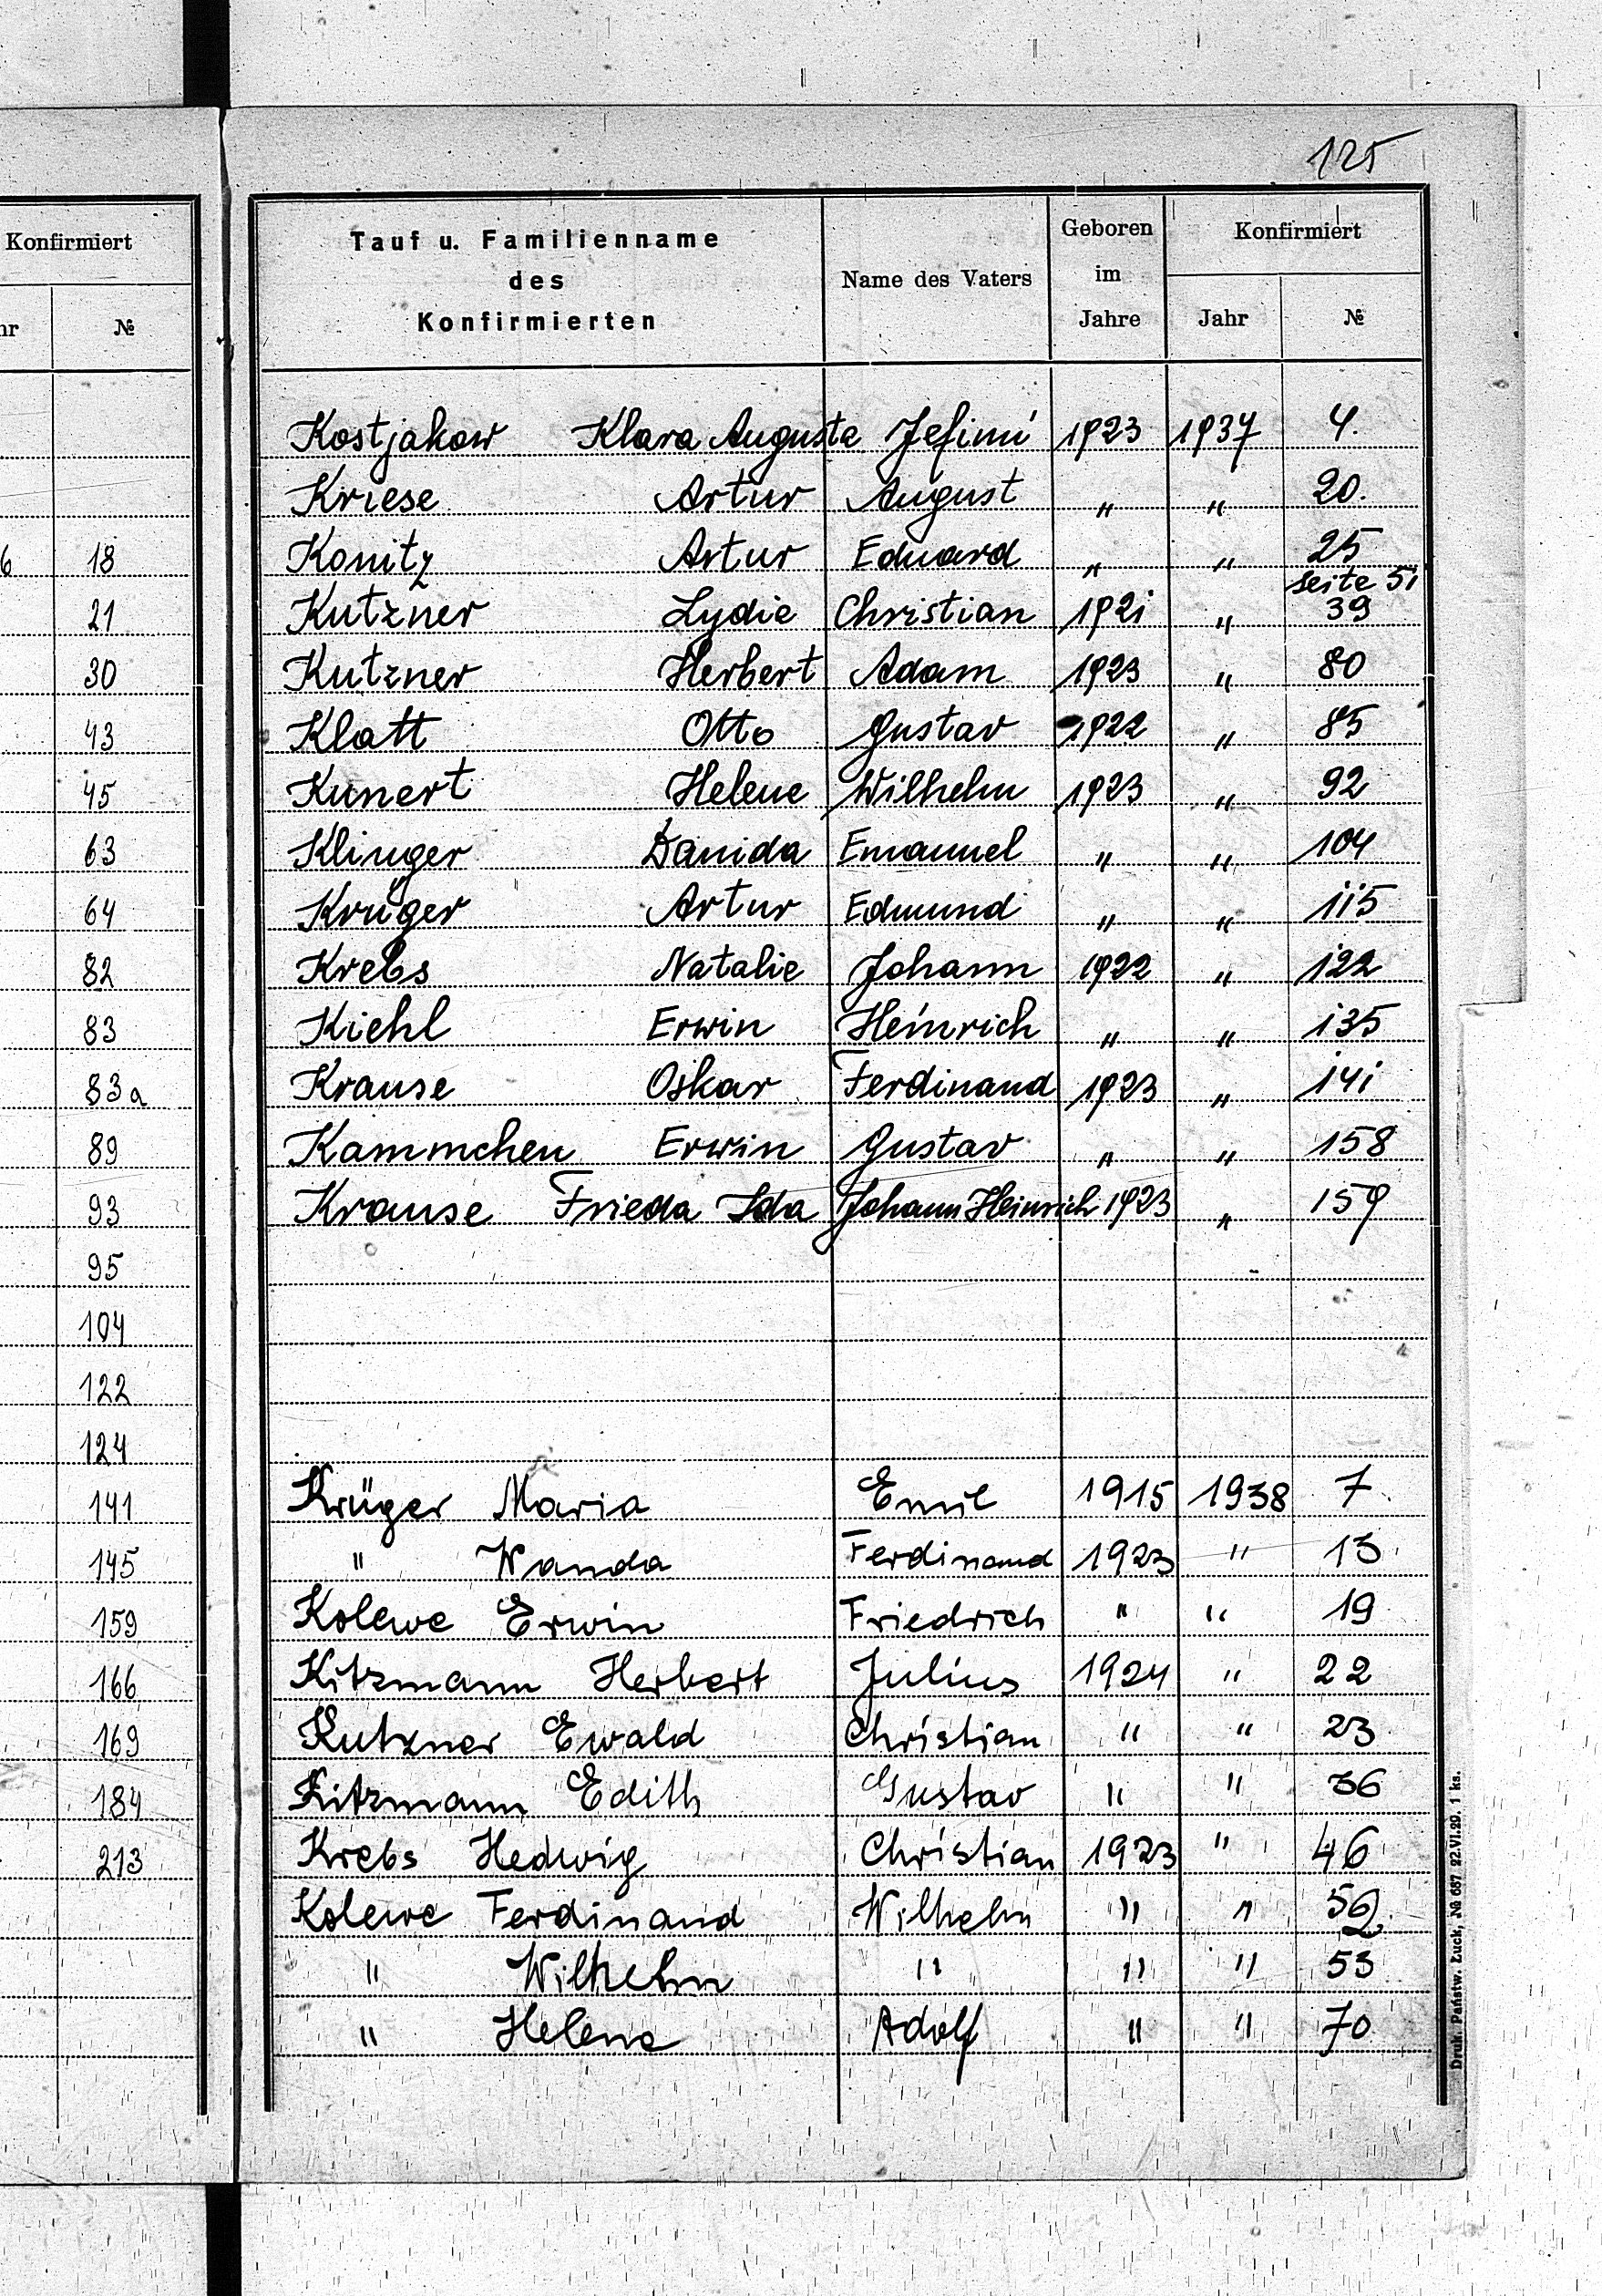 125
Konfirmiert
№
18
21
30
43
45
63
64
82
83
83a
89
93
95
104
122
124
141
145
159
166
169
184
213
Tauf u. Familienname des Konfirmierten | Name des Vaters | Geboren im Jahre | Konfirmiert Jahr | №
Kostjakow Klara Auguste Jefimi 1923 1937 4.
Kriese Artur August " " 20.
Konitz Artur Eduard " " 25
Seite 51
Kutzner Lydie Christian 1921 " 39
Kutzner Herbert Adam 1923 " 80
Klatt Otto Gustav 1922 " 85
Kunert Helene Wilhelm 1923 " 92
Klinger Danida Emanuel " " 104
Krüger Artur Edmund " " 115
Krebs Natalie Johann 1922 " 122
Kiehl Erwin Heinrich " " 135
Krause Oskar Ferdinand 1923 " 141
Kammchen Erwin Gustav " " 158
Krause Frieda Ida Johann Heinrich 1923 " 159
Krüger Maria Emil 1915 1938 7
" Wanda Ferdinand 1923 " 13
Kolewe Erwin Friedrich " " 19
Kitzmann Herbert Julius 1924 " 22
Kutzner Ewald Christian " " 23
Kitzmann Edith Gustav " " 36
Krebs Hedwig Christian 1923 " 46
Kolewe Ferdinand Wilhelm " " 52
" Wilhelm " " " 53
" Helene Adolf " " 70
Druk. Państw. Łuck, № 687 22.VI.29. 1 ks.